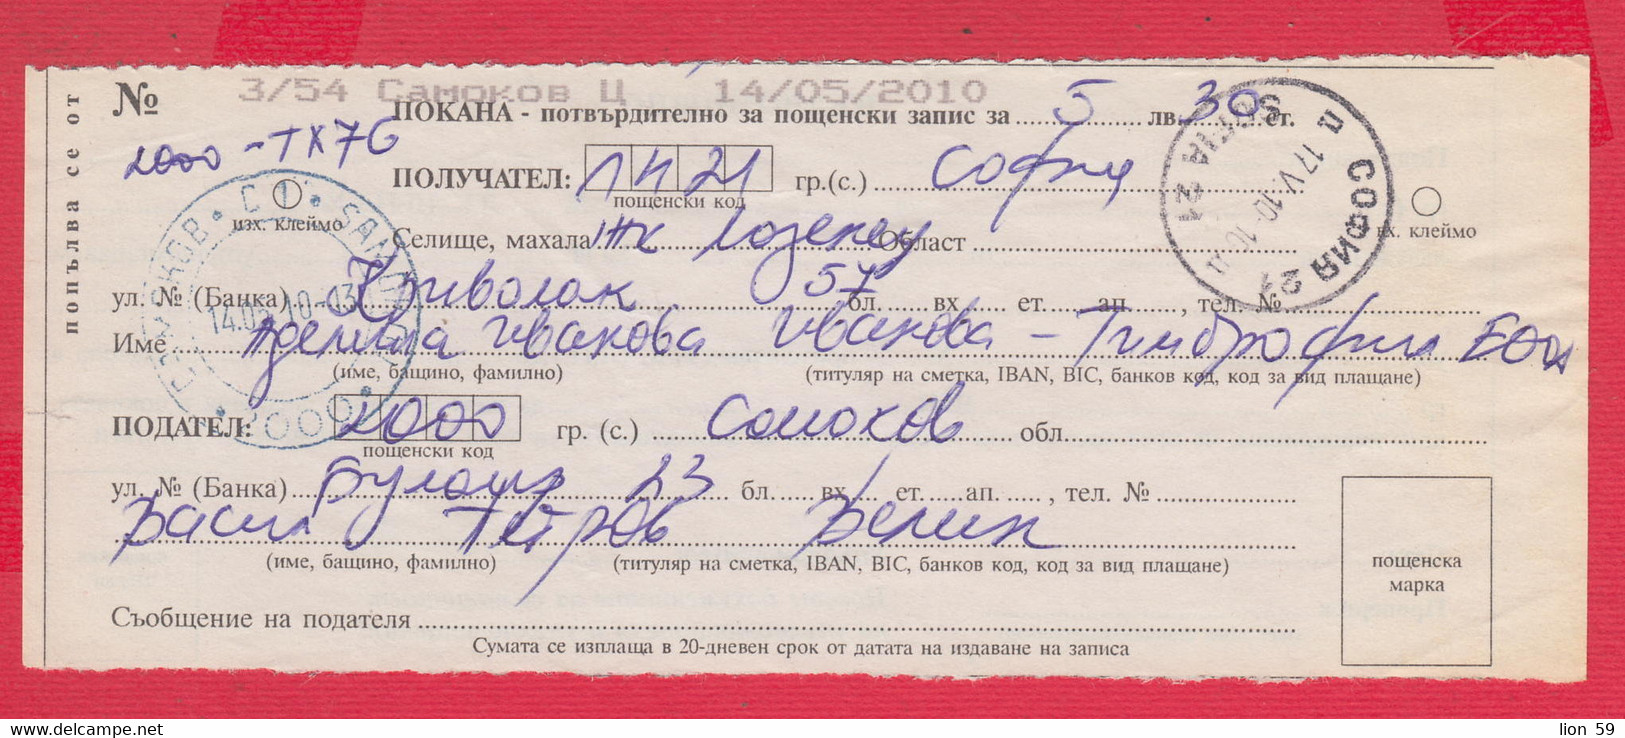 попълва се от
№ 3/54 Самоков Ц 14/05/2010
ПОКАНА - потвърдително за пощенски запис за 5 лв. 30 ст.
2000 - ТХ76
ПОЛУЧАТЕЛ: 1421 гр.(с.) София
пощенски код
изх. клеймо
вх. клеймо
Селище, махала жк Лозенец Област
ул. № (Банка) Криволак 57 бл. вх. ет. ап. , тел. №
Име Аделина Иванова Иванова - Тимброфил ЕООД
(име, бащино, фамилно) (титуляр на сметка, IBAN, BIC, банков код, код за вид плащане)
ПОДАТЕЛ: 2000 гр. (с.) Самоков обл.
пощенски код
ул. № (Банка) 23 бл. вх. ет. ап. , тел. №
Васил Петров Велин
(име, бащино, фамилно) (титуляр на сметка, IBAN, BIC, банков код, код за вид плащане)
Съобщение на подателя
Сумата се изплаща в 20-дневен срок от датата на издаване на записа
пощенска
марка
П СОФИЯ 21
SOFIA 21
17.V.10
САМОКОВ · С 1 · SAMOKOV
2000
14.05.10-13
lion 59